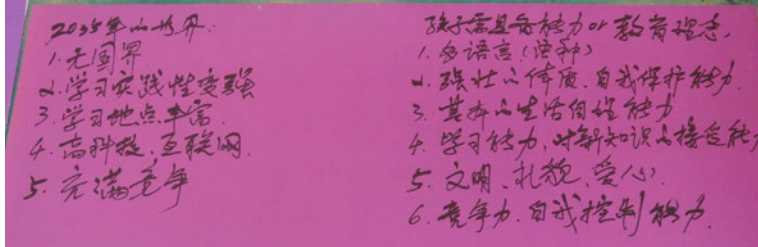 2035年的世界:
1.无国界
2.学习实践性变强
3.学习地点丰富
4.高科技、互联网.
5.充满竞争
孩子需具备能力or教育理念.
1.多语言(语种)
2.强壮的体质、自我保护能力
3.其本的生活自理能力
4.学习能力,对新知识的接受能力
5.文明、礼貌、爱心.
6.竞争力、自我控制能力.